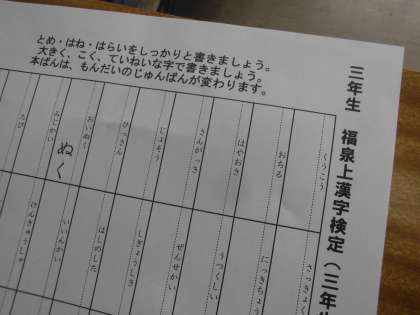 三年生 福泉上漢字検定(三年生
とめ・はね・はらいをしっかりと書きましょう。
大きく、こく、ていねいな字で書きましょう。
本ばんは、もんだいのじゅんばんが変わります。
くうこう
おちる
はやおき
さんがっき
じょそう
ひっさん
おいぬく
ぬく
みじかい
たび
さっきょく
にっきちょう
うつくしい
ぜんせかい
しぎょうしき
はじめした
いいんかい
けんきゅうしゃ